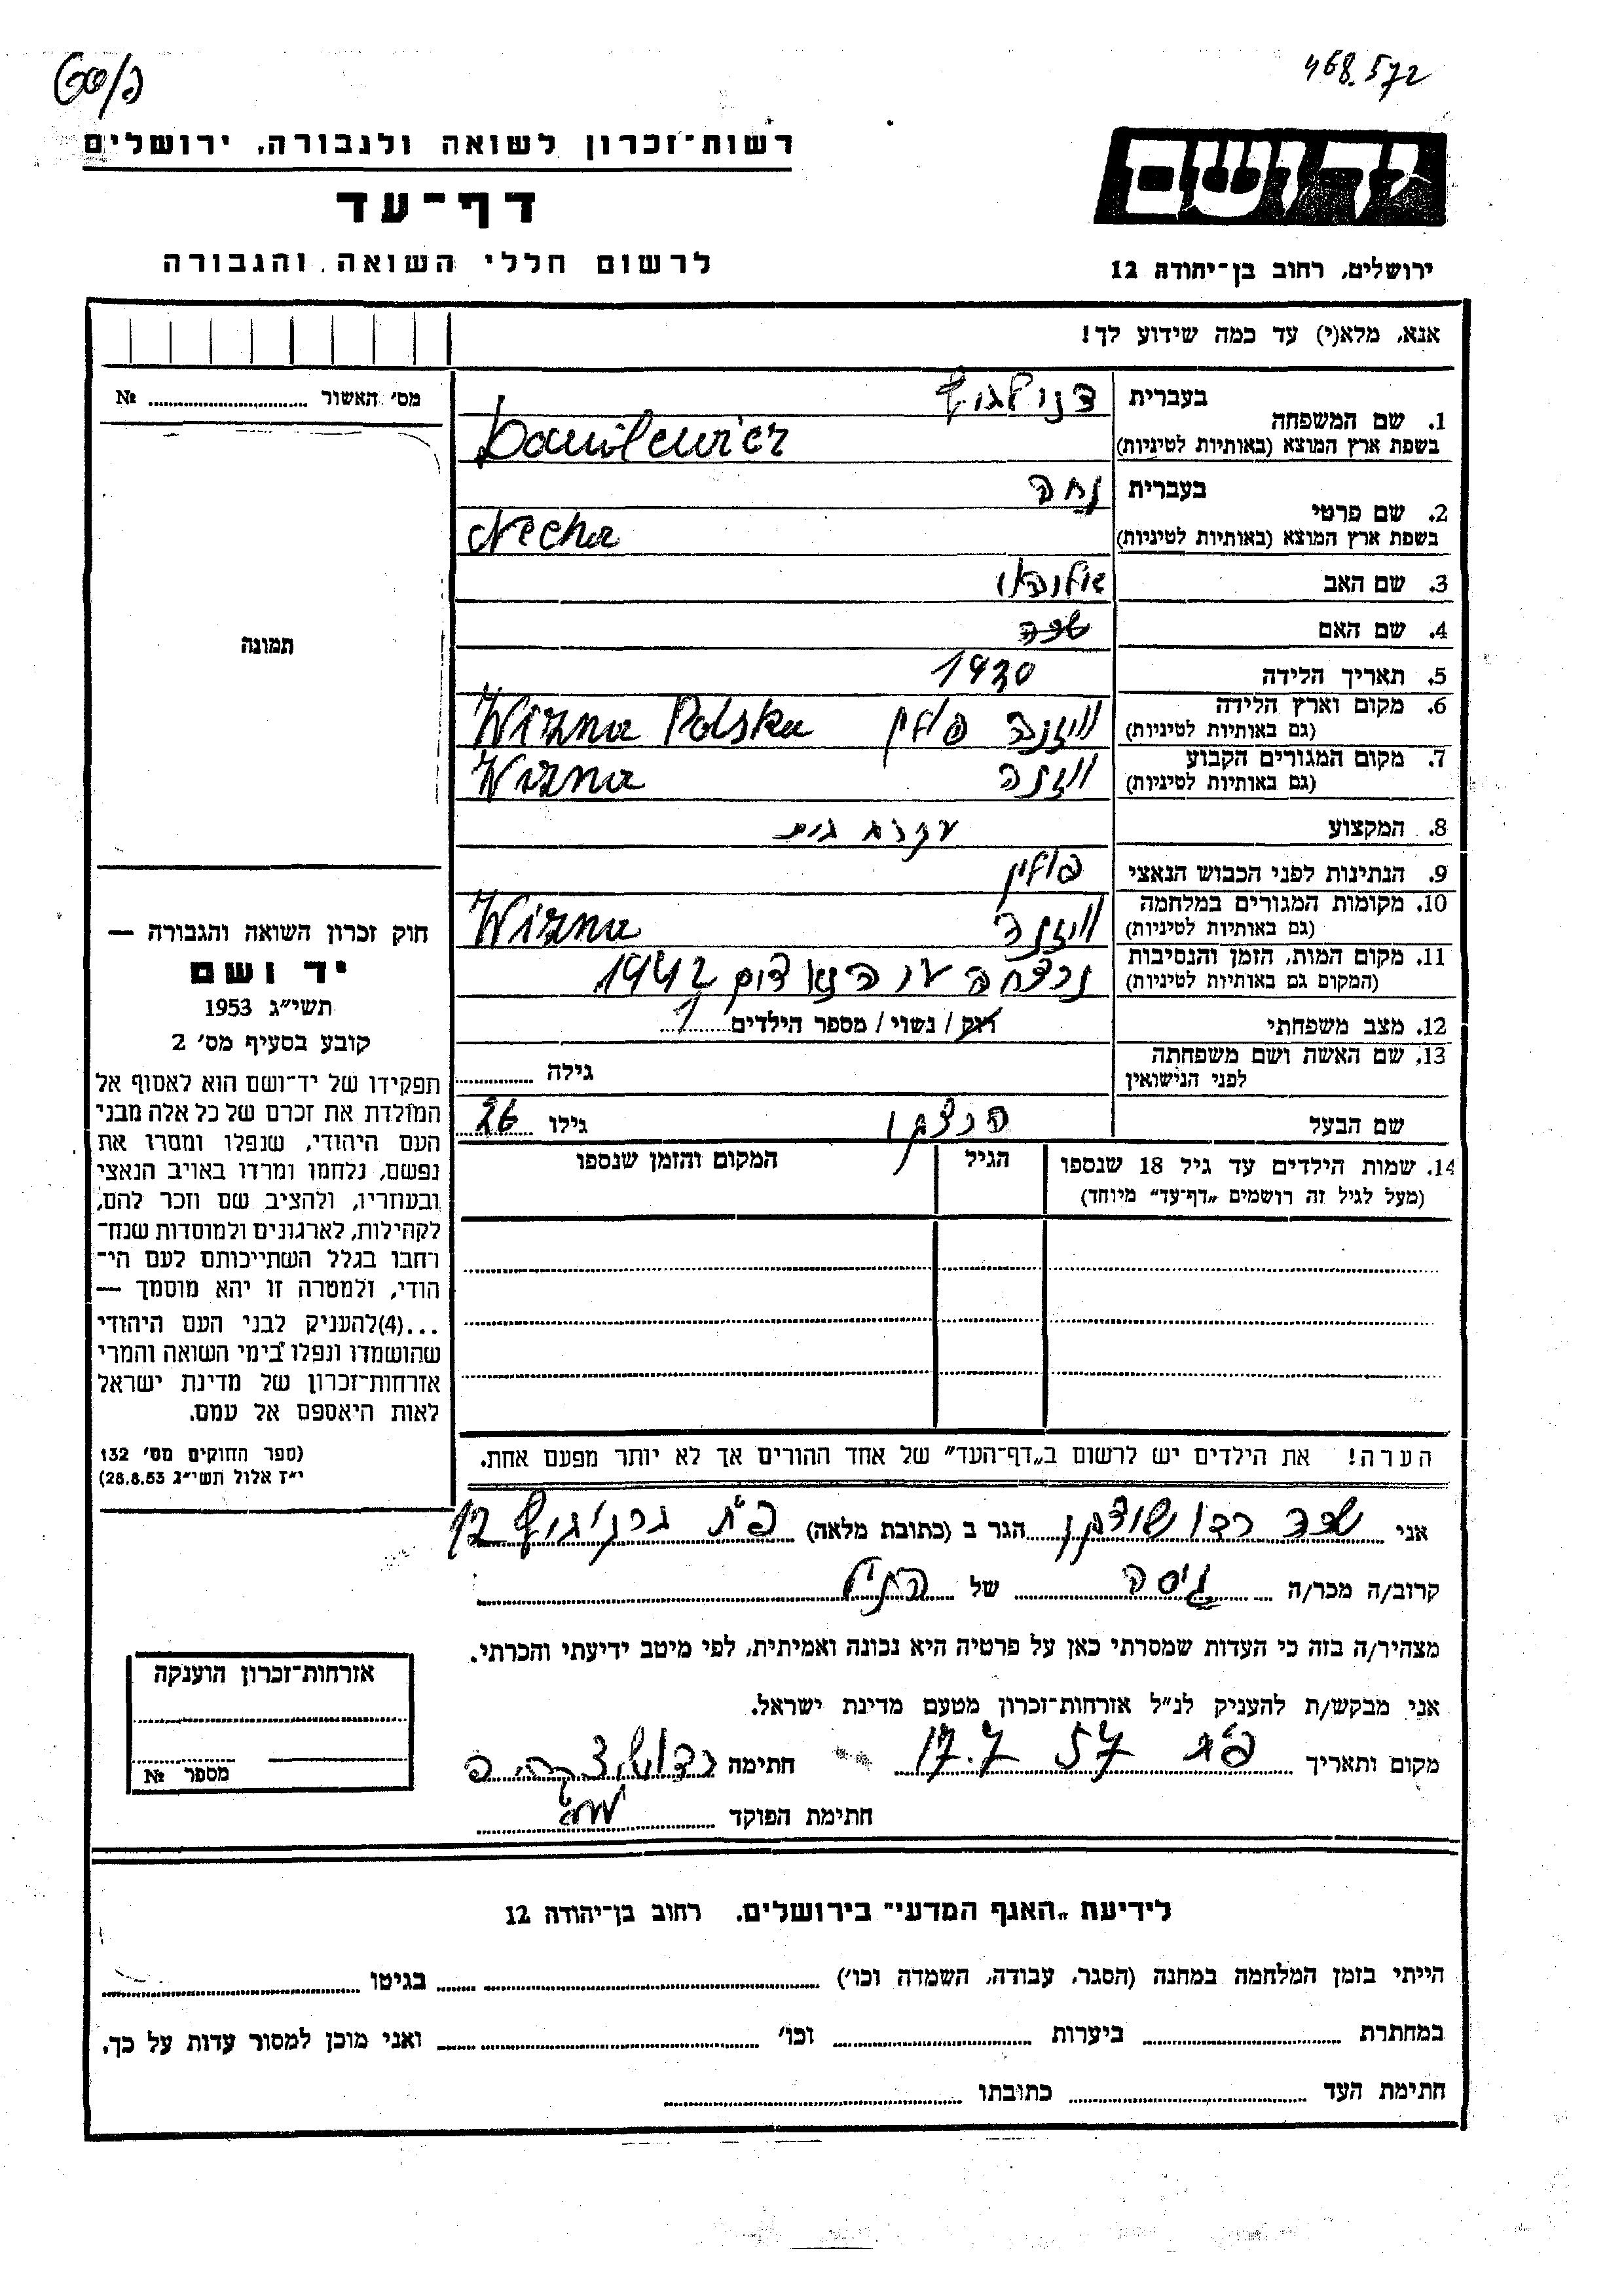 468.572
רשות־זכרון לשואה ולגבורה, ירושלים
דף־עד
לרשום חללי השואה והגבורה
ידושם
ירושלים, רחוב בן־יהודה 12
אנא, מלא(י) עד כמה שידוע לך!
מס׳ האשור № 
1. שם המשפחה בעברית
בשפת ארץ המוצא (באותיות לטיניות) Danilewicz
2. שם פרטי בעברית נחה
בשפת ארץ המוצא (באותיות לטיניות) Necha
3. שם האב
4. שם האם
5. תאריך הלידה 1920
6. מקום וארץ הלידה (גם באותיות לטיניות) וויזנה פולין Wizna Polska
7. מקום המגורים הקבוע (גם באותיות לטיניות) וויזנה Wizna
8. המקצוע עקרת בית
9. הנתינות לפני הכבוש הנאצי פולין
10. מקומות המגורים במלחמה (גם באותיות לטיניות) וויזנה Wizna
11. מקום המות, הזמן והנסיבות (המקום גם באותיות לטיניות) נרצחה ע״י הנאצים 1942
12. מצב משפחתי רוק / נשוי / מספר הילדים 1
13. שם האשה ושם משפחתה לפני הנישואין גילה
שם הבעל גילו 26
14. שמות הילדים עד גיל 18 שנספו
(מעל לגיל זה רושמים „דף־עד״ מיוחד)
הגיל
המקום והזמן שנספו
תמונה
חוק זכרון השואה והגבורה —
יד ושם
תשי״ג 1953
קובע בסעיף מס׳ 2
תפקידו של יד־ושם הוא לאסוף אל
המולדת את זכרם של כל אלה מבני
העם היהודי, שנפלו ומסרו את
נפשם, נלחמו ומרדו באויב הנאצי
ובעוזריו, ולהציב שם וזכר להם,
לקהילות, לארגונים ולמוסדות שנח־
רחבו בגלל השתייכותם לעם הי־
הודי, ולמטרה זו יהא מוסמך —
...(4)להעניק לבני העם היהודי
שהושמדו ונפלו בימי השואה והמרי
אזרחות־זכרון של מדינת ישראל
לאות היאספם אל עמם.
(ספר החוקים מס׳ 132
י״ז אלול תשי״ג 28.8.53)
הערה! את הילדים יש לרשום ב„דף־העד״ של אחד ההורים אך לא יותר מפעם אחת.
אני הגר ב (כתובת מלאה) פ״ת 12
קרוב/ה מכר/ה גיסה של
מצהיר/ה בזה כי העדות שמסרתי כאן על פרטיה היא נכונה ואמיתית, לפי מיטב ידיעתי והכרתי.
אני מבקש/ת להעניק לנ״ל אזרחות־זכרון מטעם מדינת ישראל.
מקום ותאריך פ״ת 17.7 57 חתימה
חתימת הפוקד
אזרחות־זכרון הוענקה
מספר №
לידיעת „האגף המדעי״ בירושלים, רחוב בן־יהודה 12
הייתי בזמן המלחמה במחנה (הסגר, עבודה, השמדה וכו׳) בגיטו
במחתרת ביערות וכו׳ ואני מוכן למסור עדות על כך.
חתימת העד כתובתו